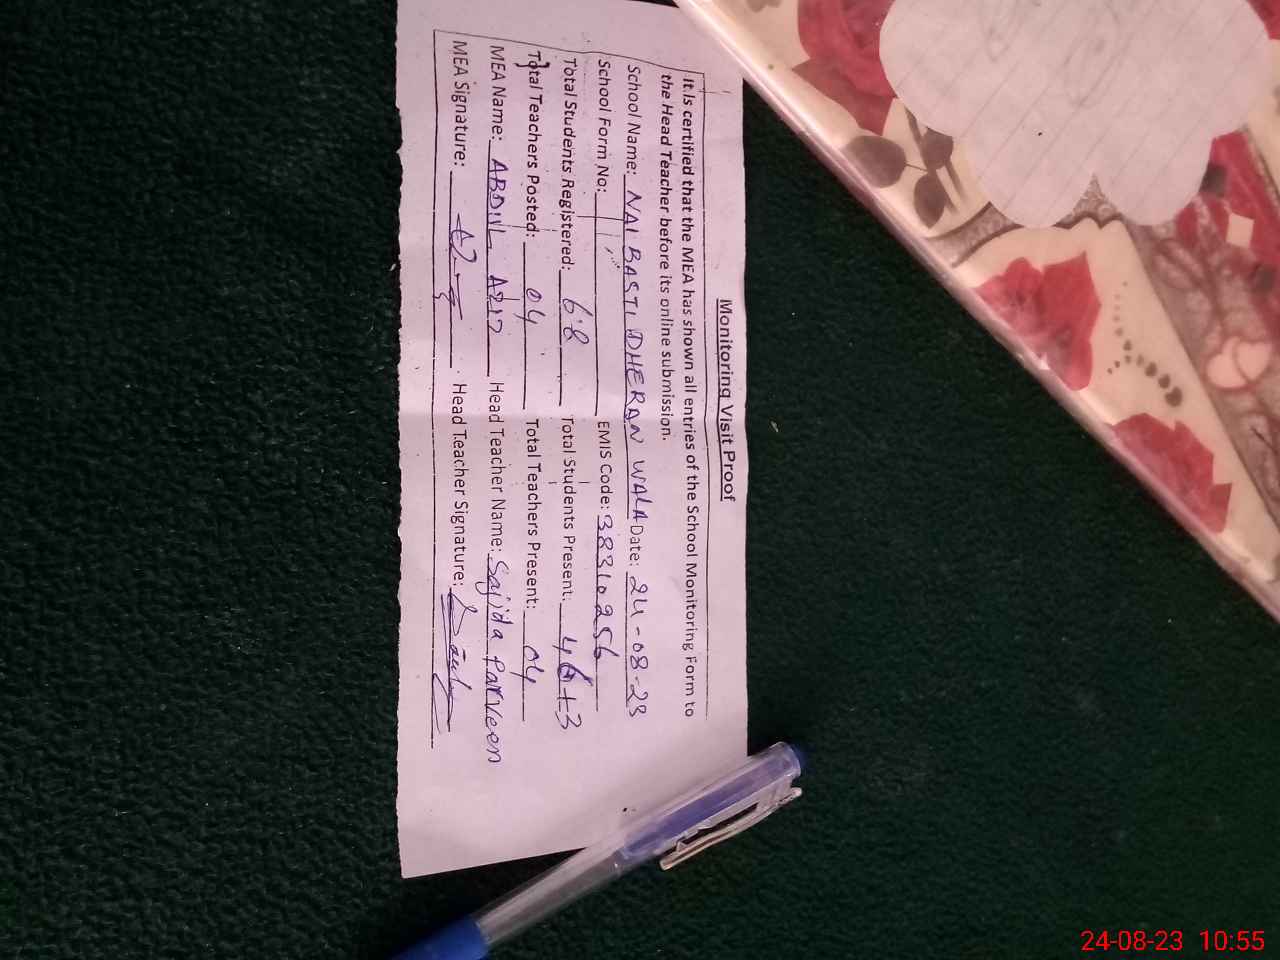 Monitoring Visit Proof
It is certified that the MEA has shown all entries of the School Monitoring Form to
the Head Teacher before its online submission.
School Name: NAI BASTI DHERAN WALA Date: 24-08-23
School Form No: EMIS Code: 38310256
Total Students Registered: 68 Total Students Present: +3
Total Teachers Posted: 04 Total Teachers Present: 04
MEA Name: ABDUL AZIZ Head Teacher Name: Sajida Parveen
MEA Signature: Head Teacher Signature:
24-08-23 10:55